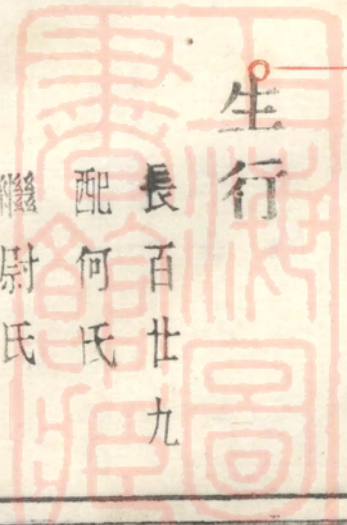 生行
長百廿九
配何氏
繼尉氏